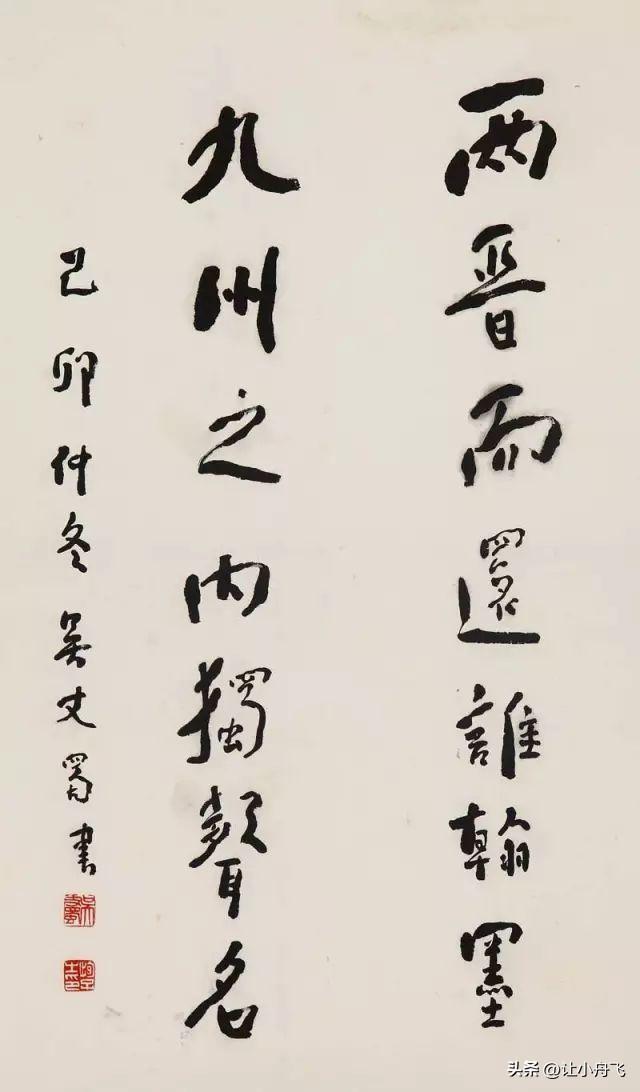 两晋而還誰翰墨
九州之内獨聲名
己卯仲冬吴丈蜀书
头条 @让小舟飞